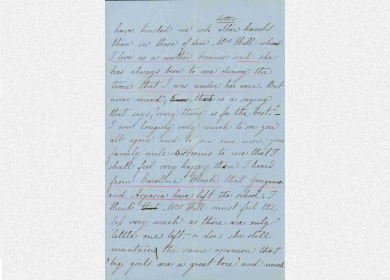 better
have trusted me into other hands
than in those of dear Mrs Hill whom
I love as a mother because such she
has always been to me during the
time that I was under her care. But
never mind, there is a saying
that says, "every thing is for the best."
I am longing very much to see you
all again and to join once more your
family circle it seems to me that I
shall feel very happy then I heard
from Caroline Black that Georgiana
and Aspasia have left the school. I
think that Mrs Hill must feel the
very much as there are only
little ones left, - or does she still
maintain the same opinion that
"big girls are a great bore" and must